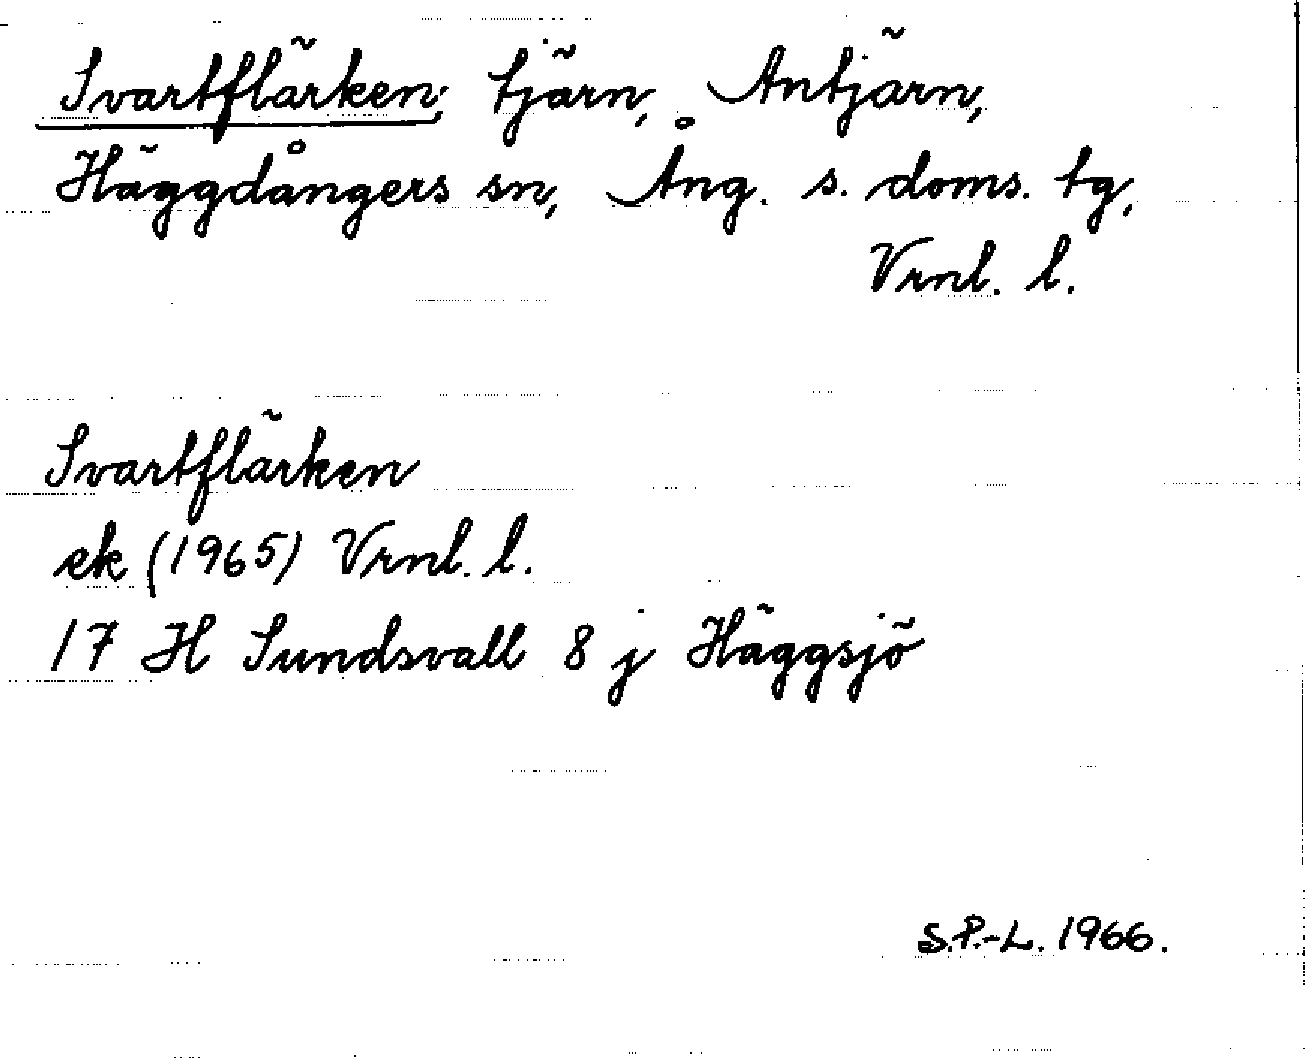 Svartflärken, tjärn, Antjärn,
Häggdångers sn, Ång. s. doms. tg,
Vrnl. l.
Svartflärken
ek (1965) Vrnl. l.
17 H Sundsvall 8 j Häggsjö
S.P.-L. 1966.